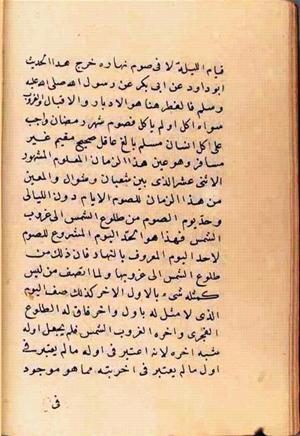 قيام الليلة لا في صوم نهاره خرج هذا الحديث
ابو داود عن ابى بكر عن رسول الله صلى الله عليه
وسلم فالفطر هنا هو الادبار والاقبال الغروب
سواء اكل او لم ياكل فصوم شهر رمضان واجب
على كل انسان مسلم بالغ عاقل صحيح مقيم غير
مسافر وهو عين هذا الزمان المعلوم المشهور
الاثنى عشر الذى بين شعبان وشوال والمعين
من هذا الزمان للصوم الايام دون الليالى
وحد يوم الصوم من طلوع الشمس الى غروب
الشمس فهذا هو الحد اليوم المشروع للصوم
لا حد اليوم المعروف بالنهار فان ذلك من
طلوع الشمس الى غروبها ولما اتصف من ليس
كمثله شىء بالاول الاخر كذلك صف اليوم
الذى لا مثل له باول واخر فاوله الطلوع
الفجرى واخره الغروب الشمس فلم يجعل اوله
مشبه اخره لانه اعتبر فى اوله ما لم يعتبر فى
اول ما لم يعتبر فى اخريته مما هو موجود
فى